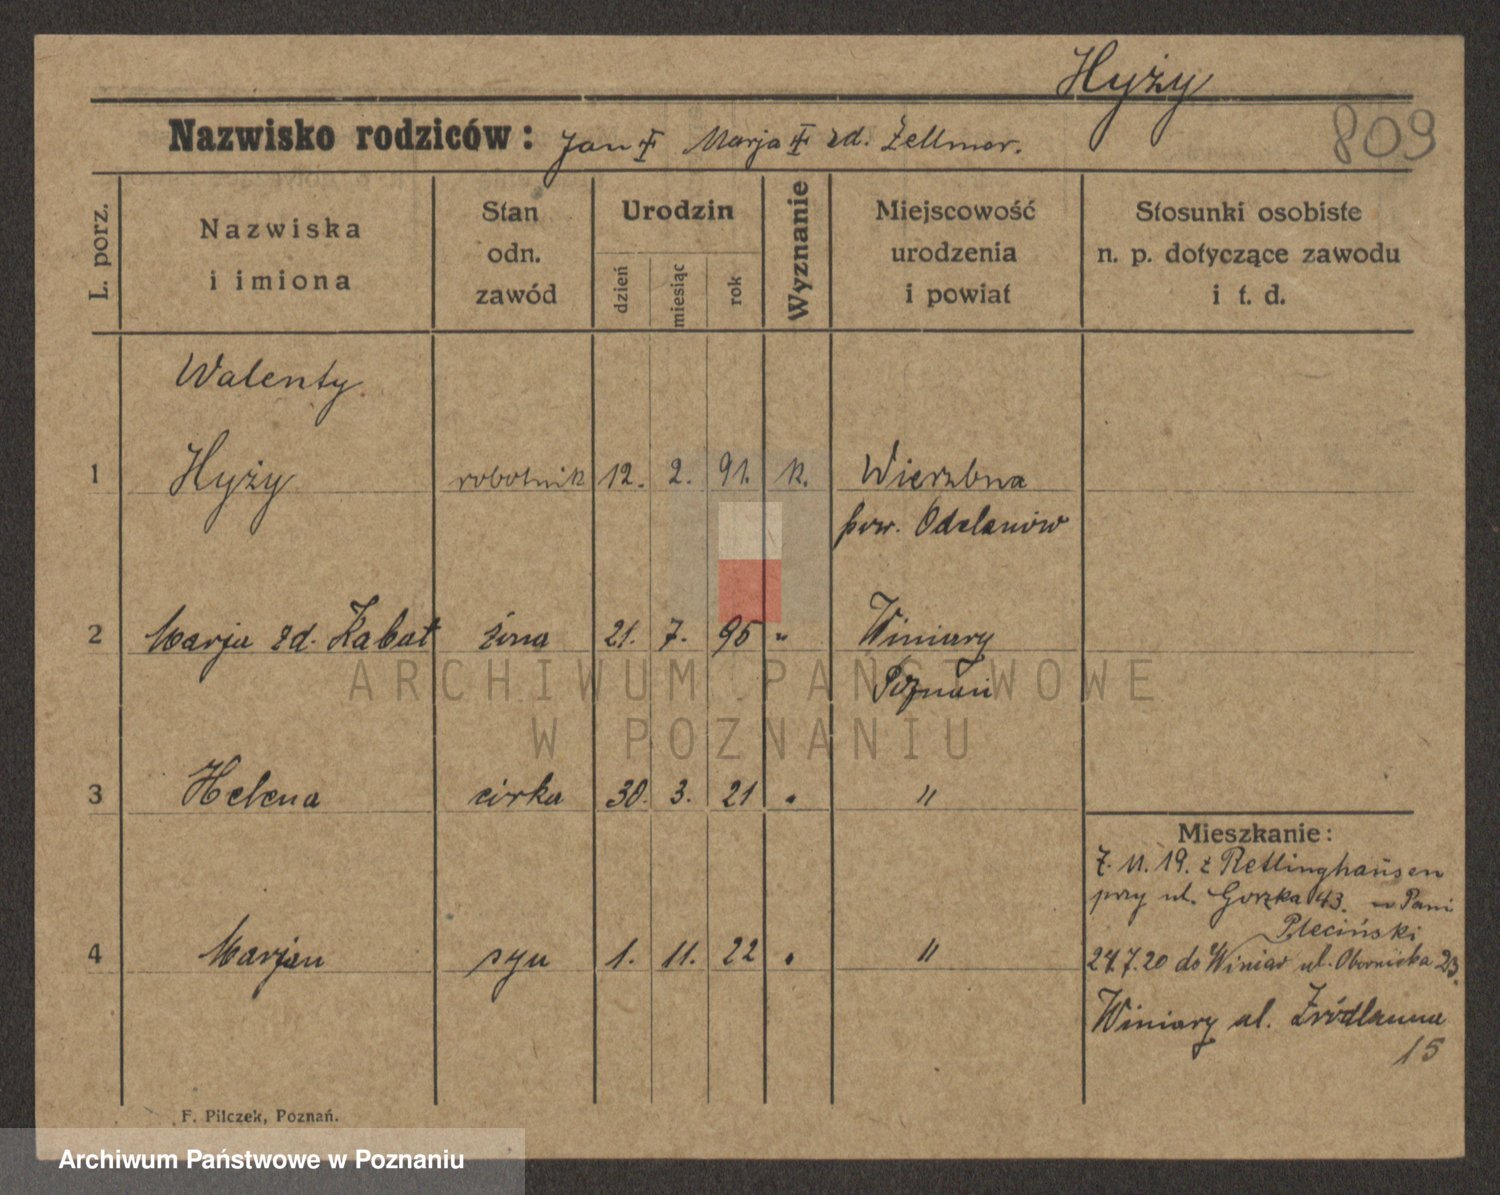 Hyży
809
Nazwisko rodziców: Jan Marja zd. Zellmer.
L. porz.
Nazwiska
i imiona
Stan
odn.
zawód
Urodzin
dzień
miesiąc
rok
Wyznanie
Miejscowość
urodzenia
i powiat
Stosunki osobiste
n. p. dotyczące zawodu
i t. d.
Walenty
1 Hyży robotnik 12. 2. 91. k. Wierzbna
pow. Odolanów
2 Marja zd. Kabat żona 21. 7. 95 " Winiary
Poznań
3 Helena córka 30. 3. 21 "
4 Marjan syn 1. 11. 22 "
Mieszkanie:
7. 11. 19. z Retlinghausen
przy ul. Gorzka 43. Pani
Pleciński
24.7.20 do Winiar ul. Obornicka 23.
Winiary ul. Źródlanna
15
F. Pilczek, Poznań.
ARCHIWUM PAŃSTWOWE
W POZNANIU
Archiwum Państwowe w Poznaniu